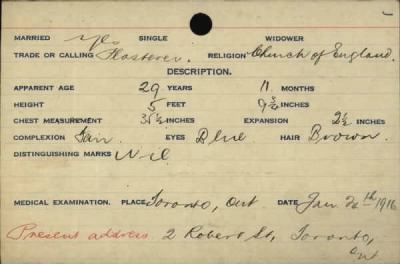 MARRIED Yes SINGLE WIDOWER
TRADE OR CALLING Plasterer. RELIGION Church of England.
DESCRIPTION.
APPARENT AGE 29 YEARS 11 MONTHS
HEIGHT 5 FEET 9 INCHES
CHEST MEASUREMENT 35½ INCHES EXPANSION 2½ INCHES
COMPLEXION Fair. EYES Blue HAIR Brown.
DISTINGUISHING MARKS Nil
MEDICAL EXAMINATION. PLACE Toronto, Ont DATE Jan th 1916
Present address 2 Robert St, Toronto,
Ont